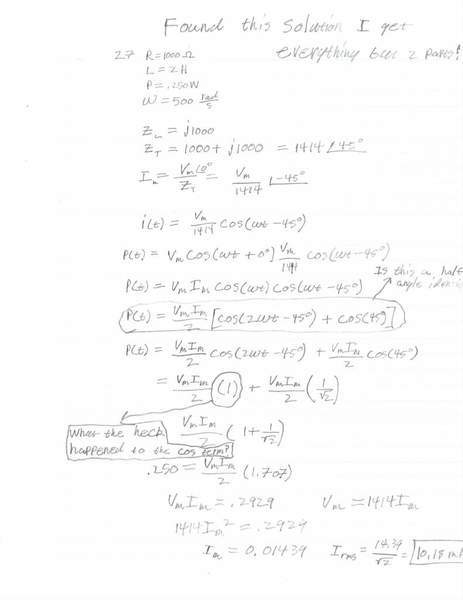 Found this solution I get
everything but 2 parts!
2.7 R = 1000 Ω
L = 2 H
P = .250 W
W = 500 rad/s
Z_L = j1000
Z_T = 1000 + j1000 = 1414 ∠45°
I_m = V_m∠0°/Z_T = V_m/1414 ∠-45°
i(t) = V_m/1414 cos(ωt-45°)
P(t) = V_m cos(ωt+0°) V_m/1414 cos(ωt-45°)
Is this a half
angle
P(t) = V_m I_m cos(ωt) cos(ωt-45°)
P(t) = V_m I_m/2 [cos(2ωt-45°) + cos(45°)]
P(t) = V_m I_m/2 cos(2ωt-45°) + V_m I_m/2 cos(45°)
= V_m I_m/2 (1) + V_m I_m/2 (1/√2)
What the heck
happened to the cos term?
V_m I_m/2 (1 + 1/√2)
.250 = V_m I_m/2 (1.707)
V_m I_m = .2929 V_m = 1414 I_m
1414 I_m² = .2929
I_m = 0.01439 I_rms = 14.39/√2 = 10.18